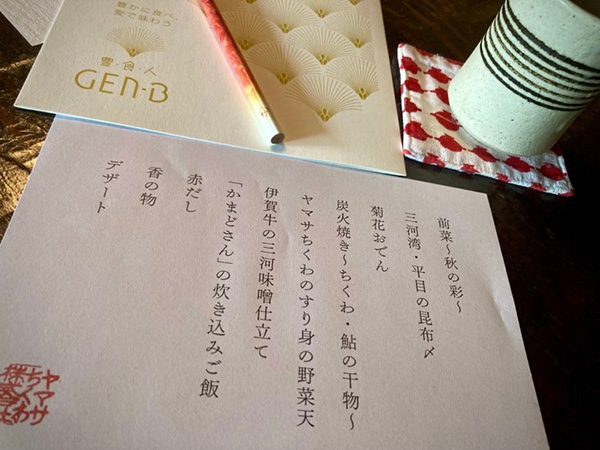 豊かに食べ、
愛で味わう
豊・食・人
GEN-B
前菜〜秋の彩〜
三河湾・平目の昆布〆
菊花おでん
炭火焼き〜ちくわ・鮎の干物〜
ヤマサちくわのすり身の野菜天
伊賀牛の三河味噌仕立て
「かまどさん」の炊き込みご飯
赤だし
香の物
デザート
ヤマサ
ちくわ